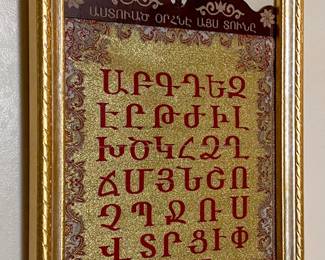 ԱՍՏՈՒԱԾ ՕՐՀՆԷ ԱՅՍ ՏՈՒՆԸ
ԱԲԳԴԵԶ
ԷԸԹԺԻԼ
ԽԾԿՀՁՂ
ՃՄՅՆՇՈ
ՉՊՋՌՍ
ՎՏՐՑՒՓ